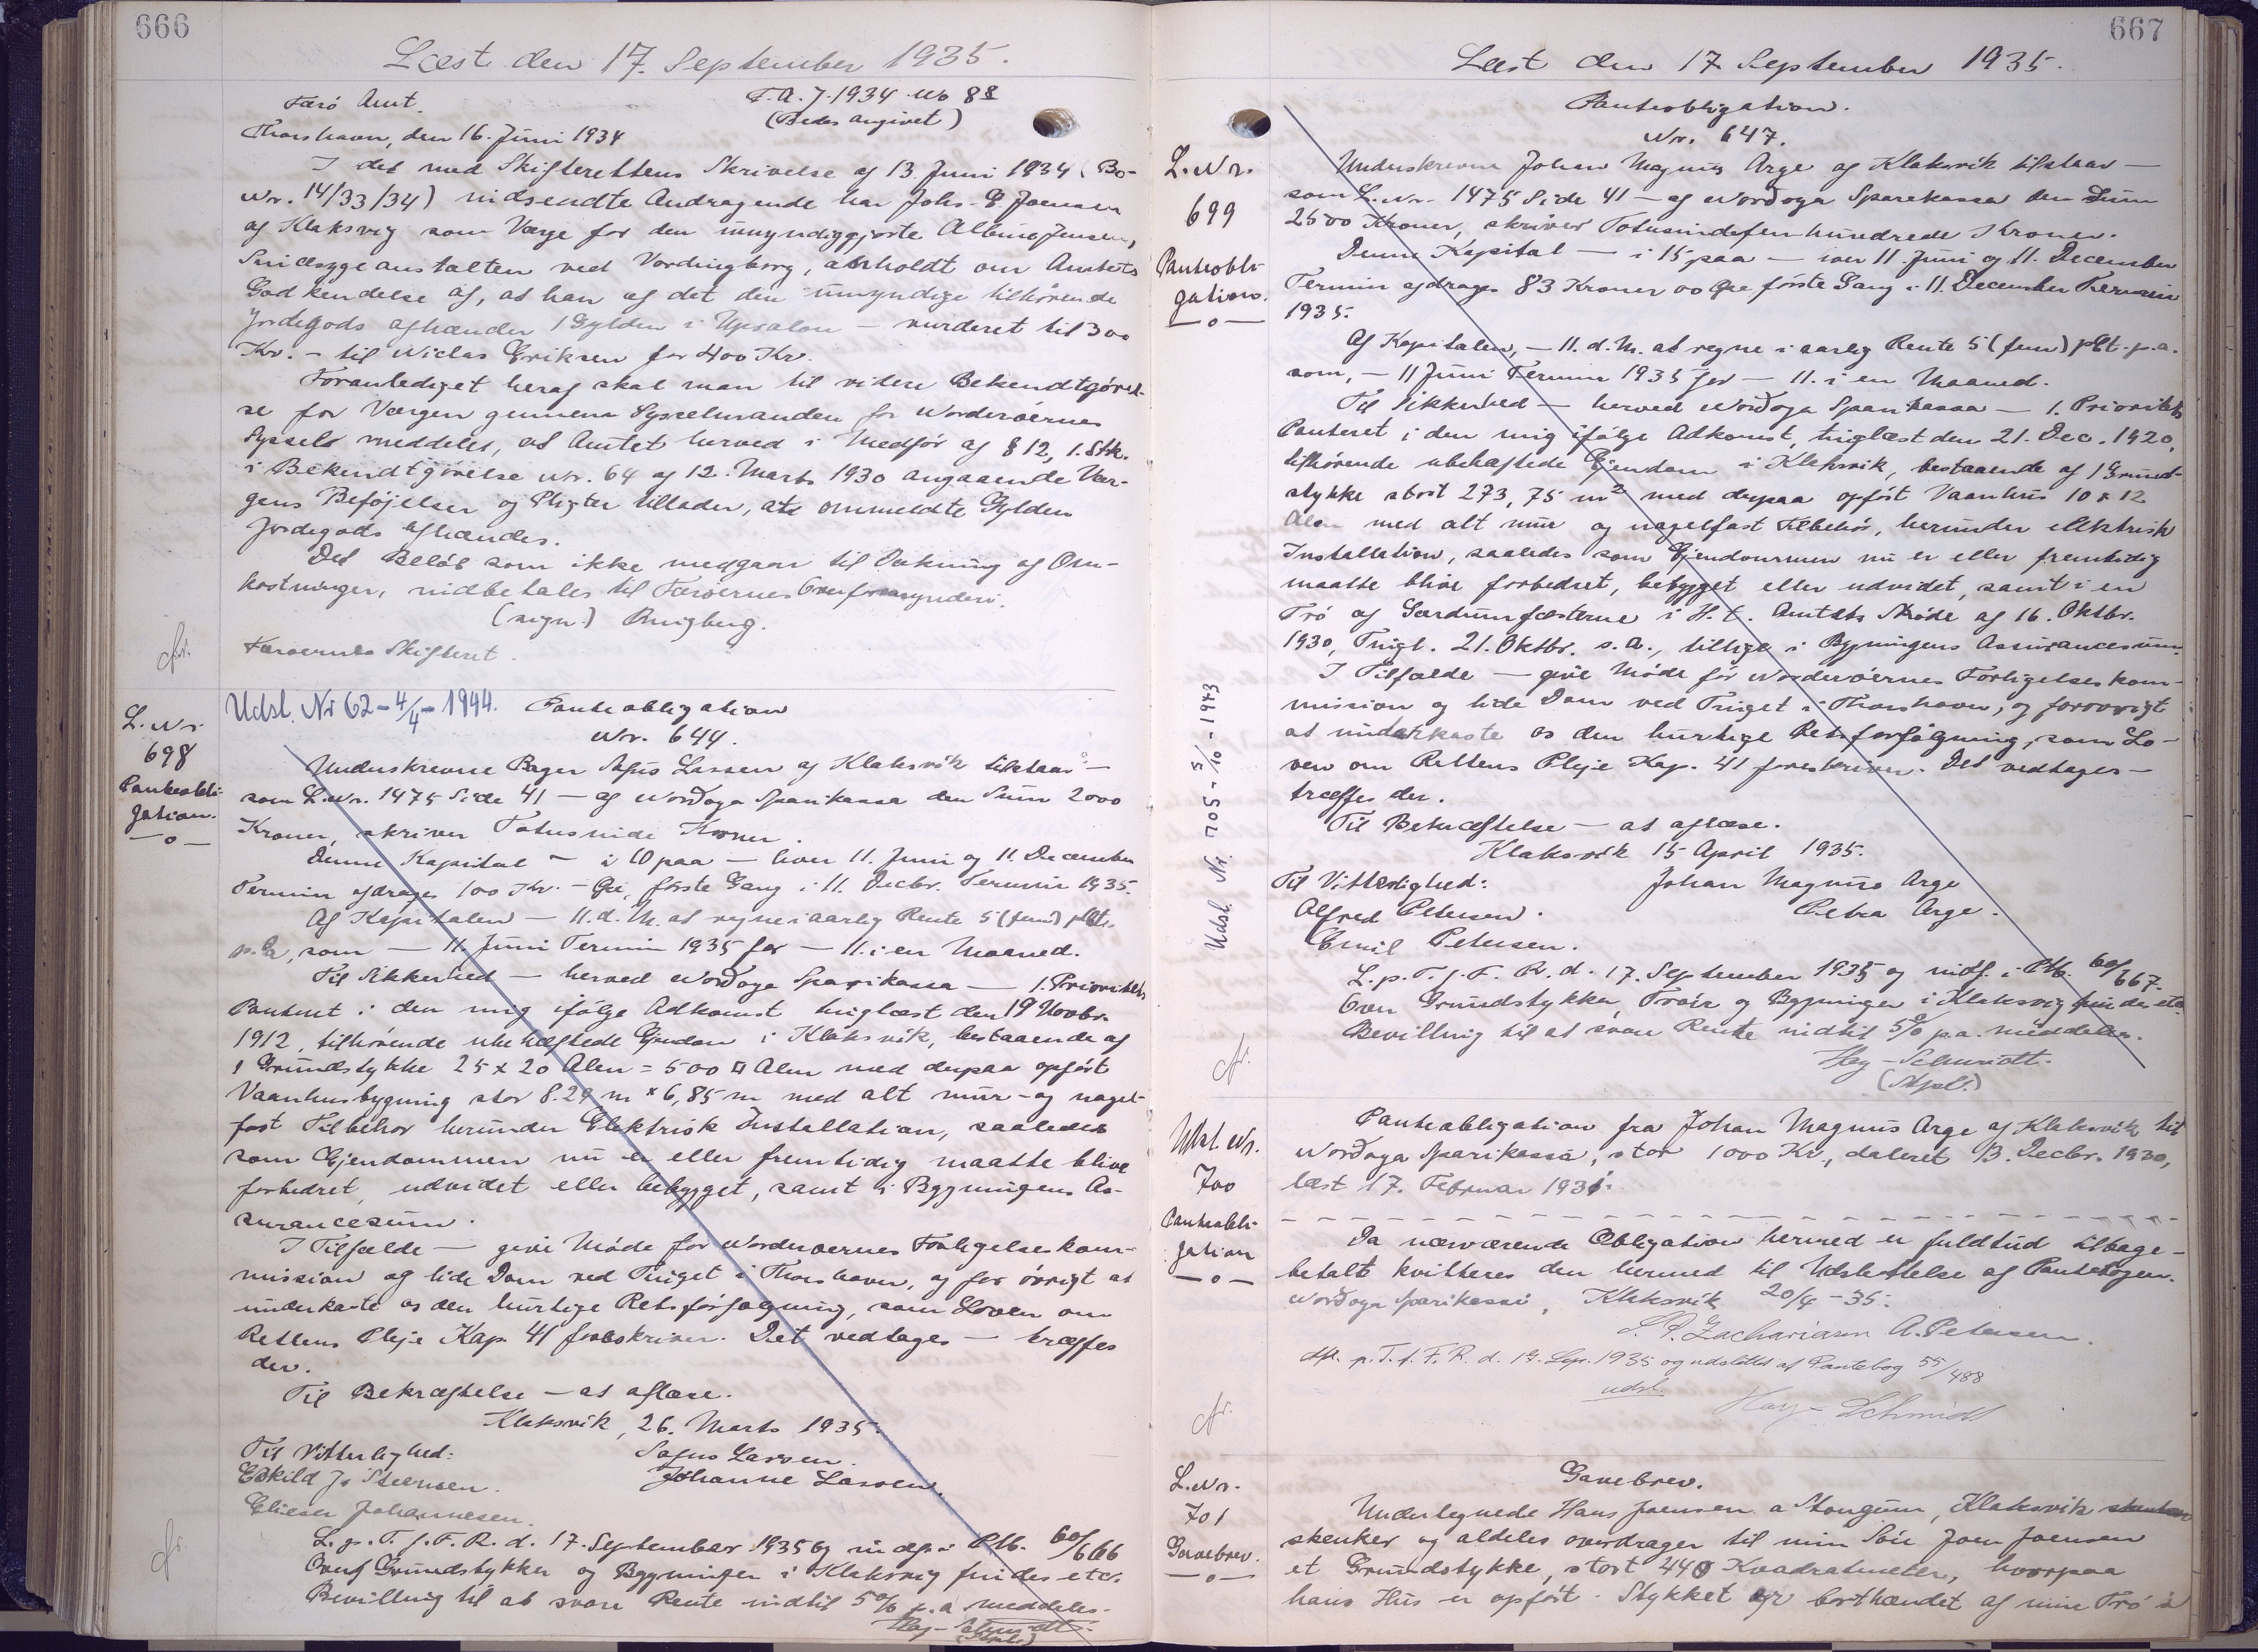 666
Læst den 17. September 1935.
Færö Amt.
F.A.J. 1934 No 88
(Bedes angivet)
Thorshavn, den 16. Juni 1934
I det med Skifterettens Skrivelse af 13. Juni 1934 (Bo-
Nr. 14/33/34) indsendte Andragende har Johs. Joensen
af Klaksvig som Værge for den umyndiggjorte Jensen,
Sindssygeanstalten ved Vordingborg, anholdt om Amtets
Godkendelse af, at han af det den umyndige tilhørende
Jordegods afhænder 1 Gylden i Upsalon – vurderet til 300
Kr. – til Niclas Eriksen for 400 Kr.
Foranlediget heraf skal man til videre Bekendtgørel-
se for Værgen gennem Sysselmanden for Norderöernes
Syssel meddeles, at Amtet herved i Medför af § 12, 1. Stk.
i Bekendtgörelse Nr. 64 af 12. Marts 1930 angaaende Vær-
gens Beföjelser og Pligter tillader, at ommeldte Gylden
Jordegods afhændes.
Det Belöb som ikke medgaar til Dækning af Om-
kostninger, indbetales til Færöernes Overformynderi.
(sign.) Ringberg.
Færöernes Skifteret.
L. Nr.
698
Panteobli-
gation.
—o—
Udsl. Nr 62 – 4/4 – 1944.
Panteobligation
Nr. 644.
Underskrevne Bager Sofus Larsen af Klaksvik tilstaar —
som L. Nr. 1475 Side 41 — af Nordoya Sparikassa den Sum 2000
Kroner, skriver Totusinde Kroner.
Denne Kapital — i 10 paa — hver 11. Juni og 11. December
Termin afdrages 100 Kr. – Öre, förste Gang i 11. Decbr. Termin 1935.
Af Kapitalen — 11. d. M. at regne i aarlig Rente 5 (fem) pCt.
p.a., som — 11. Juni Termin 1935 for — 11. i en Maaned.
Til Sikkerhed — herved Nordoya Sparikassa — 1. Prioritets
Panteret i den mig ifölge Adkomst tinglæst den 19 Novbr.
1912, tilhörende ubehæftede Ejendom i Klaksvik, bestaaende af
1 Grundstykke 25 x 20 Alen = 500 □ Alen med derpaa opfört
Vaanhusbygning stor 8.29 m x 6,85 m med alt mur- og nagel-
fast Tilbehör herunder Elektrisk Installation, saaledes
som Ejendommen nu er eller fremtidig maatte blive
forbedret, udvidet eller bebygget, samt i Bygningens As-
surancesum.
I Tilfælde — give Möde for Norderöernes Forligelseskom-
mission og lide Dom ved Tinget i Thorshavn, og for övrigt at
underkaste os den hurtige Retsforfölgning, som Loven om
Rettens Pleje Kap. 41 foreskriver. Det vedtages — træffes
der.
Til Bekræftelse — at aflæse.
Klaksvik, 26. Marts 1935.
Til Vitterlighed:
Sofus Larsen.
Eskild Js Steensen.
Johanne Larsen.
Elieser Johannesen.
L. p. T. f. F. R. d. 17. September 1935 og indf. i Ptb. 60/666
Over Grundstykker og Bygninger i Klaksvig findes etc.
Bevilling til at svare Rente indtil 5% p.a. meddeles.
Hey-Schmidt
667
Læst den 17. September 1935.
L. Nr.
699
Panteobli-
gation.
—o—
Udsl. Nr. 705 – 5/10 – 1943
Panteobligation.
Nr. 647.
Underskrevne Johan Magnus Arge af Klaksvik tilstaar —
som L. Nr. 1475 Side 41 — af Nordoya Sparekassa den Sum
2500 Kroner, skriver Totusindefemhundrede Kroner.
Denne Kapital — i 15 paa — hver 11. Juni og 11. December
Termin afdrages 83 Kroner 00 Öre förste Gang i 11. December Termin
1935.
Af Kapitalen, — 11. d. M. at regne i aarlig Rente 5 (fem) pCt. p.a.
som, — 11 Juni Termin 1935 for — 11. i en Maaned.
Til Sikkerhed — herved Nordoya Sparikassa — 1. Prioritets
Panteret i den mig ifölge Adkomst, tinglæst den 21. Dec. 1920,
tilhörende ubehæftede Ejendom i Klaksvik, bestaaende af 1 Grund-
stykke stort 273,75 m² med derpaa opfört Vaanhus 10 x 12
Alen med alt mur og nagelfast Tilbehör, herunder elektrisk
Installation, saaledes som Ejendommen nu er eller fremtidig
maatte blive forbedret, bebygget eller udvidet, samt i en
Trö af Gærdumfæsterne i H. t. Amtets Sköde af 16. Oktbr.
1930, Tingl. 21. Oktbr. s.A., tillige i Bygningens Assurancesum.
I Tilfælde — give Möde for Norderöernes Forligelseskom-
mission og lide Dom ved Tinget i Thorshavn, og foroversigt
at underkaste os den hurtige Retsforfölgning, som Lo-
ven om Rettens Pleje Kap. 41 foreskriver. Det vedtages —
træffes der.
Til Bekræftelse — at aflæse.
Klaksvik 15 April 1935.
Til Vitterlighed:
Johan Magnus Arge
Alfred Petersen.
Petra Arge.
Emil Petersen.
L. p. T. f. F. R. d. 17. September 1935 og indf. i Ptb. 60/667.
Over Grundstykker, Tröer og Bygninger i Klaksvig findes etc.
Bevilling til at svare Rente indtil 5% p.a. meddeles.
Hey-Schmidt.
Udsl. Nr.
700
Panteobli-
gation
—o—
Panteobligation fra Johan Magnus Arge af Klaksvik til
Nordoya Sparikassa, stor 1000 Kr., dateret 13. Decbr. 1930,
læst 17. Februar 1931.
Da nærværende Obligation hermed er fuldtud tilbage-
betalt kvitteres den hermed til Udslettelse af Pantebogen.
Nordoya Sparikassi, Klaksvik 20/4 – 35.
Zachariasen A. Petersen.
Afl. p. T. f. F. R. d. 17. Sep. 1935 og udslettet af Pantebog 55/488
udsl.
Hey-Schmidt
L. Nr.
701
Gavebrev.
—o—
Gavebrev.
Undertegnede Hans Joensen a Stongum, Klaksvik
skenker og aldeles overdrager til min Sön Joen Joensen
et Grundstykke, stort 440 Kvadratmeter, hvorpaa
hans Hus er opfört. Stykket er borthændet af min Trö i